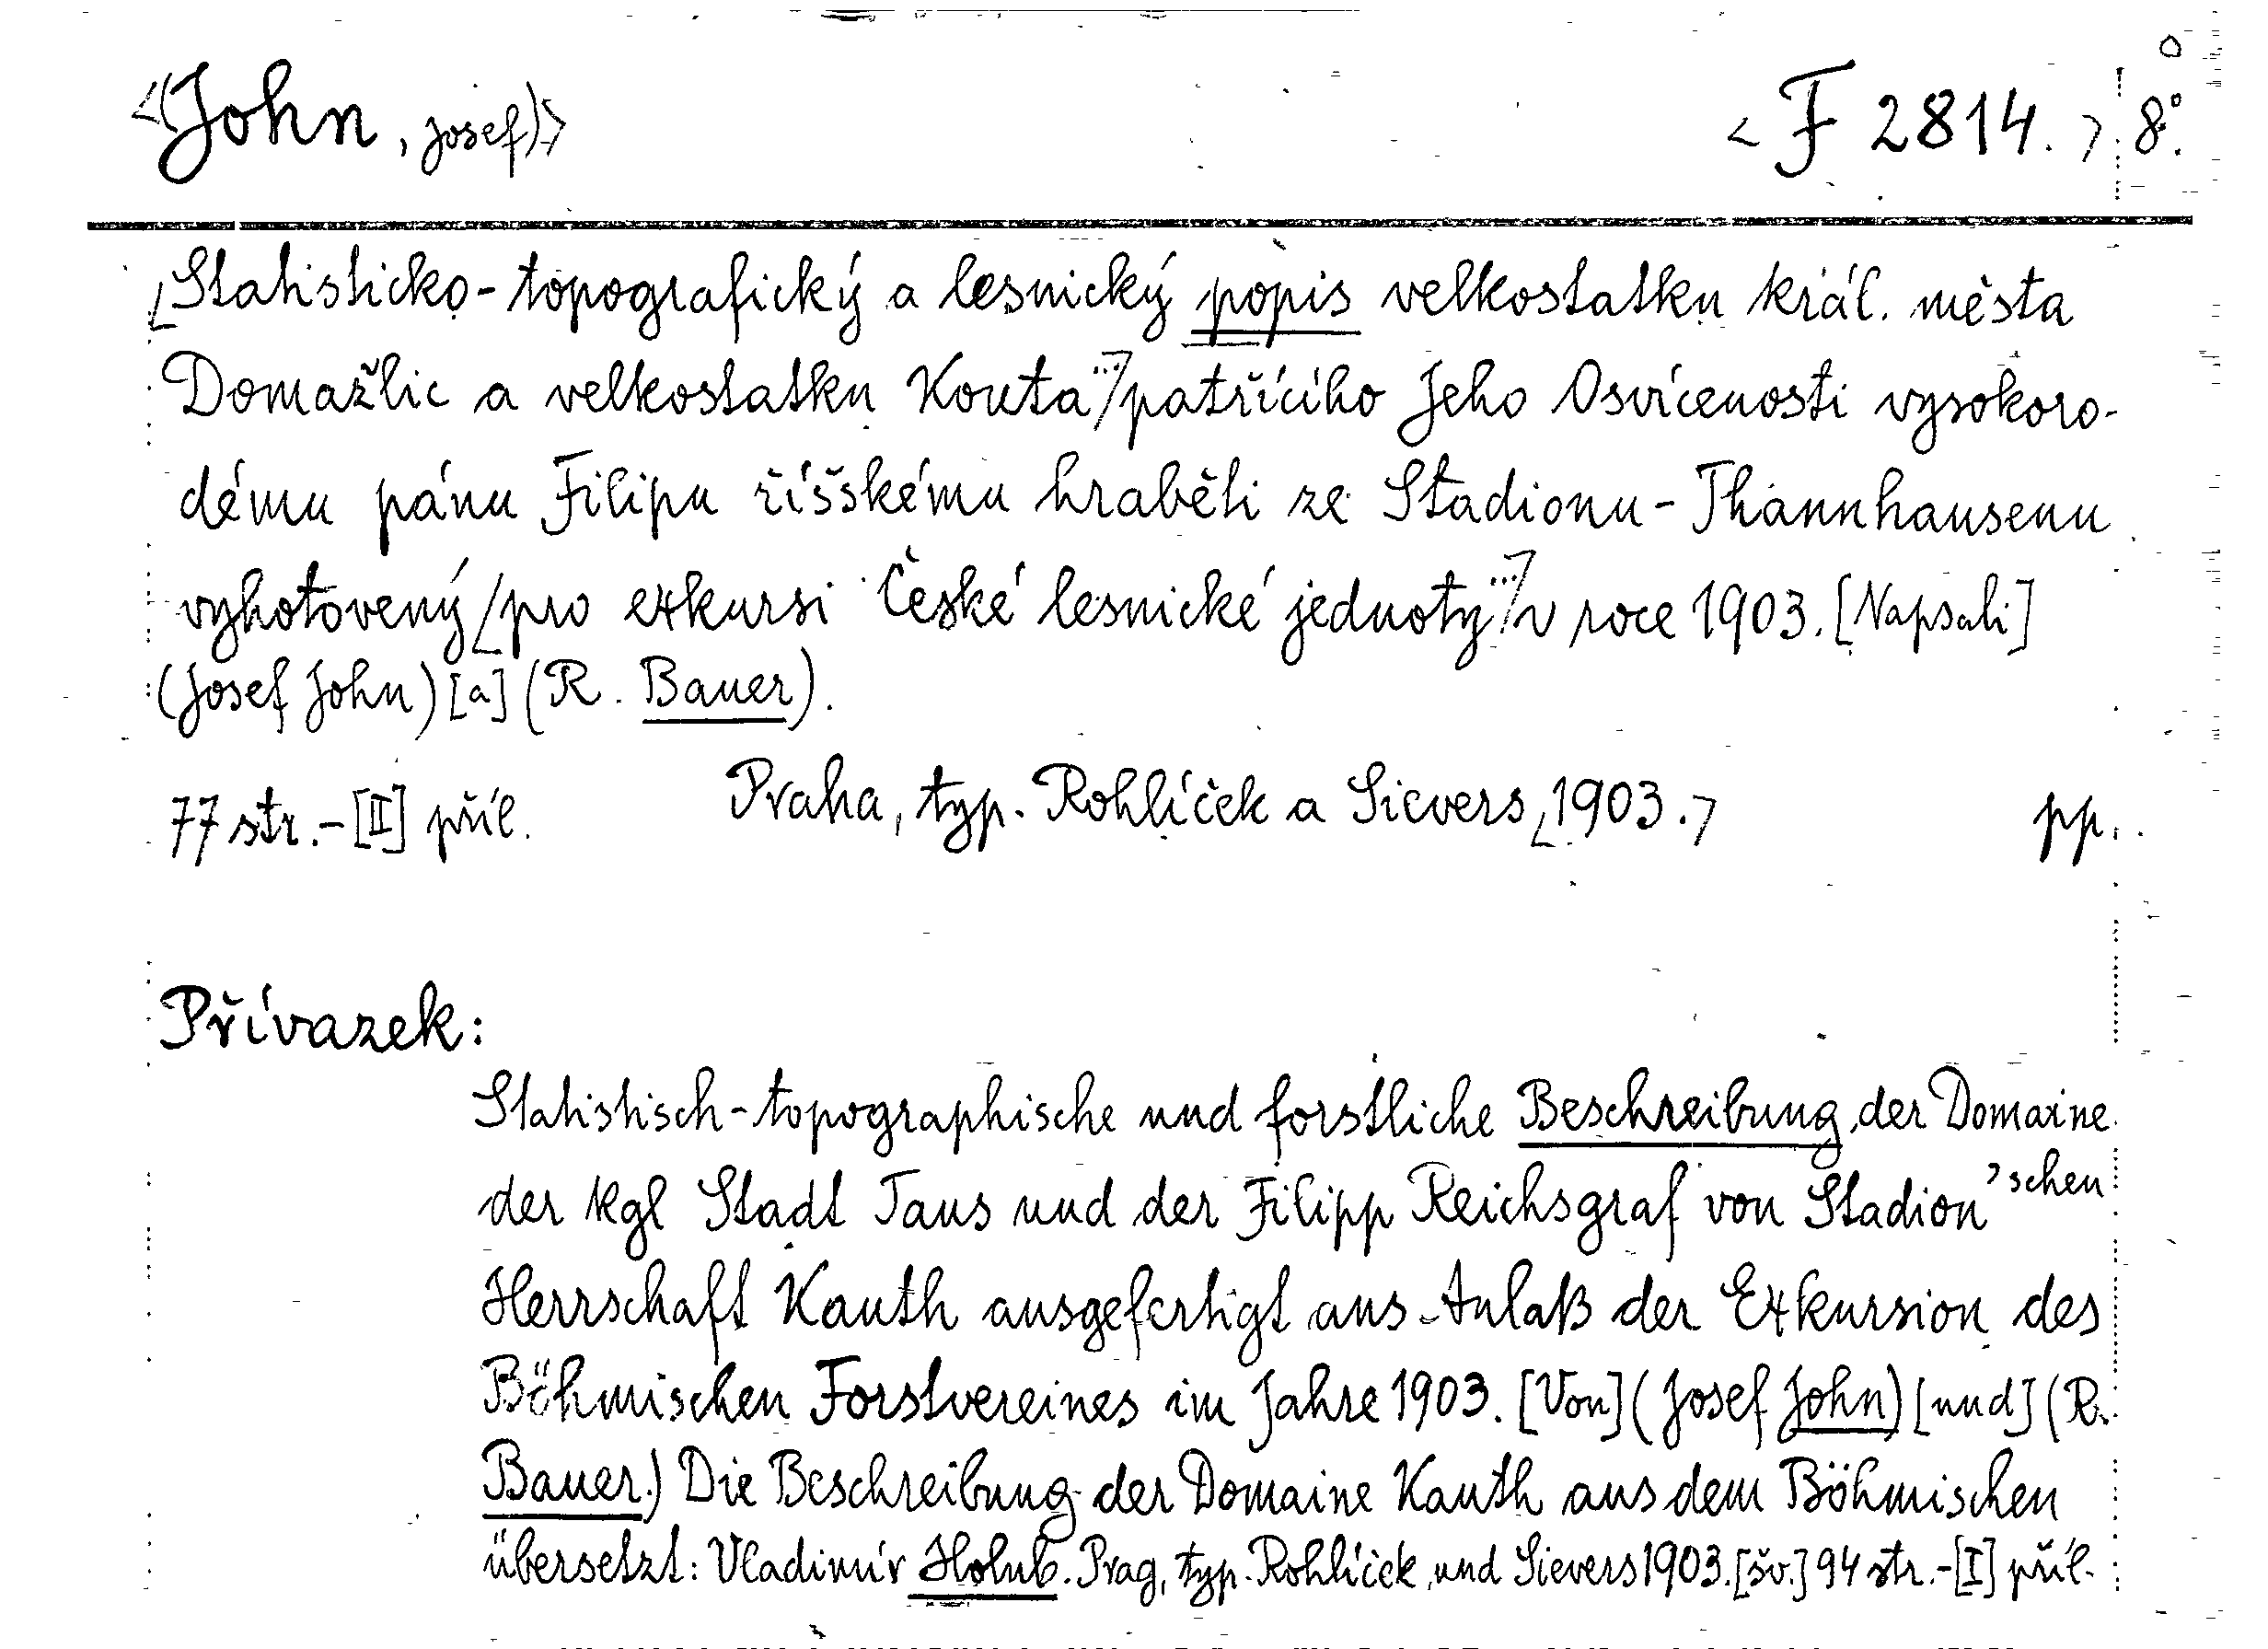 <(John, Josef)> <F 2814.> 8°.
Statisticko-topografický a lesnický popis velkostatku král. města
Domažlic a velkostatku Kouta ...patřícího Jeho Osvícenosti vysokoro-
dému pánu Filipu říšskému hraběti ze Stadionu-Thannhausenu
vyhotovený pro exkursi České lesnické jednoty ... v roce 1903. [Napsali]
(Josef John) [a] (R. Bauer).
77 str.-[II] příl. Praha, typ. Rohlíček a Sievers, 1903. pp.
Přívazek:
Statistisch-topographische und forstliche Beschreibung der Domaine
der kgl Stadt Taus und der Filipp Reichsgraf von Stadion'schen
Herrschaft Kauth ausgefertigt aus Anlaß der Exkursion des
Böhmischen Forstvereines im Jahre 1903. [Von] (Josef John) [und] (R.
Bauer.) Die Beschreibung der Domaine Kauth aus dem Böhmischen
übersetzt: Vladimír Holub. Prag, typ. Rohlíček und Sievers 1903. [šv.] 94 str.-[I] příl.